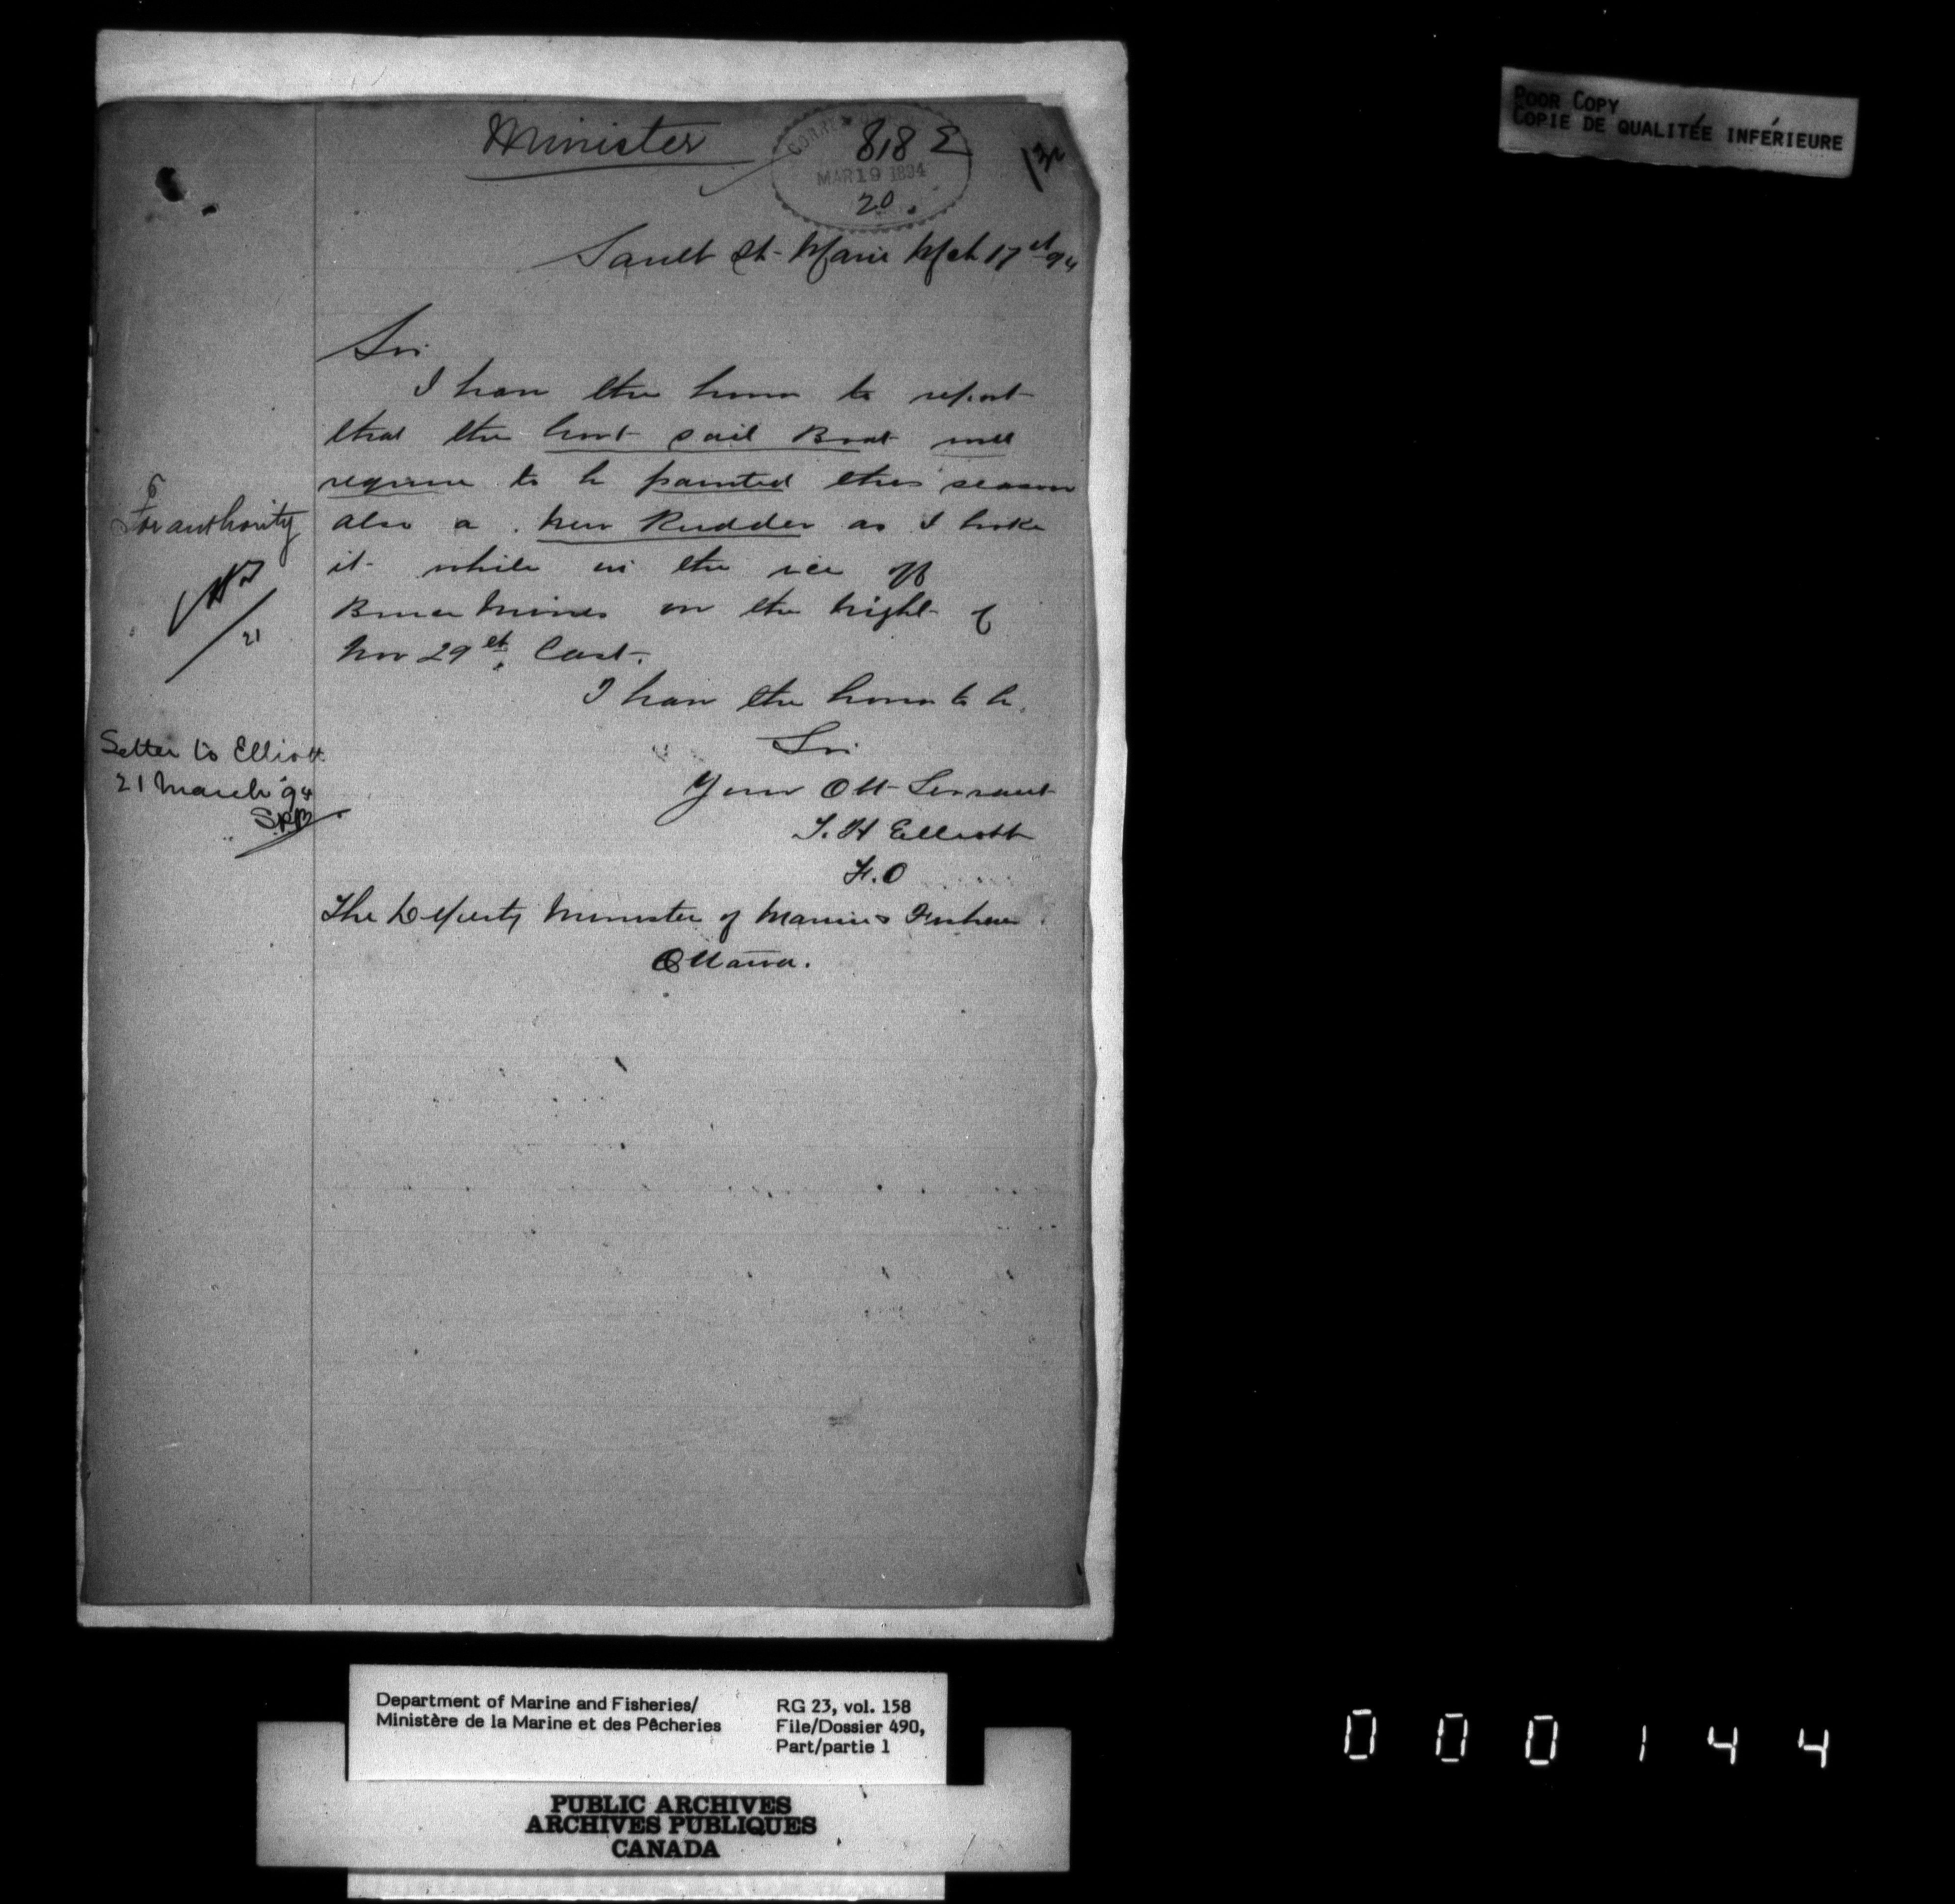 POOR COPY
COPIE DE QUALITÉE INFÉRIEURE
Minister
818 E
MAR 19 1894
20
Sault St-Marie Mch 17th 94
Sir
I have the honor to report
that the Govt sail Boat will
require to be painted this season
also a new Rudder as I broke
it while in the ice off
Bruce Mines on the night of
Nov 29th, last.
I have the honor to be
Sir
Your Obt Servant
T. H Elliott
F.O
The Deputy Minister of Marine & Fisheries
Ottawa.
For authority
21
Letter to Elliott
21 March 94
Department of Marine and Fisheries/
Ministère de la Marine et des Pêcheries
RG 23, vol. 158
File/Dossier 490,
Part/partie 1
PUBLIC ARCHIVES
ARCHIVES PUBLIQUES
CANADA
000144